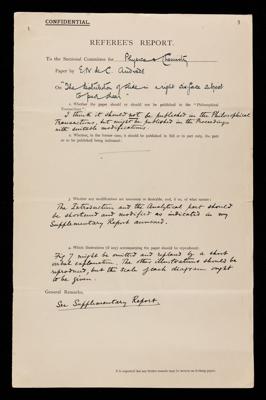 CONFIDENTIAL.
REFEREE'S REPORT.
To the Sectional Committee for Physics & Chemistry
Paper by E. N. da C. Andrade
On "The distribution of slide in a right surface subject
to pure shear"
1. Whether the paper should or should not be published in the "Philosophical
Transactions."
I think it should not be published in the Philosophical
Transactions, but might be published in the Proceedings
with suitable modifications.
2. Whether, in the former case, it should be published in full or in part only, the part
or to be published being indicated.
3. Whether any modifications are necessary or desirable, and, if so, of what nature?
The Introduction and the Analytical part should
be shortened and modified as indicated in my
Supplementary Report annexed.
4. Which illustrations (if any) accompanying the paper should be reproduced?
Fig 7 might be omitted and replaced by a short
verbal explanation. The other illustrations should be
reproduced, but the scale of each diagram ought
to be given.
General Remarks.
See Supplementary Report.
It is requested that any further remarks may be written on foolscap paper.